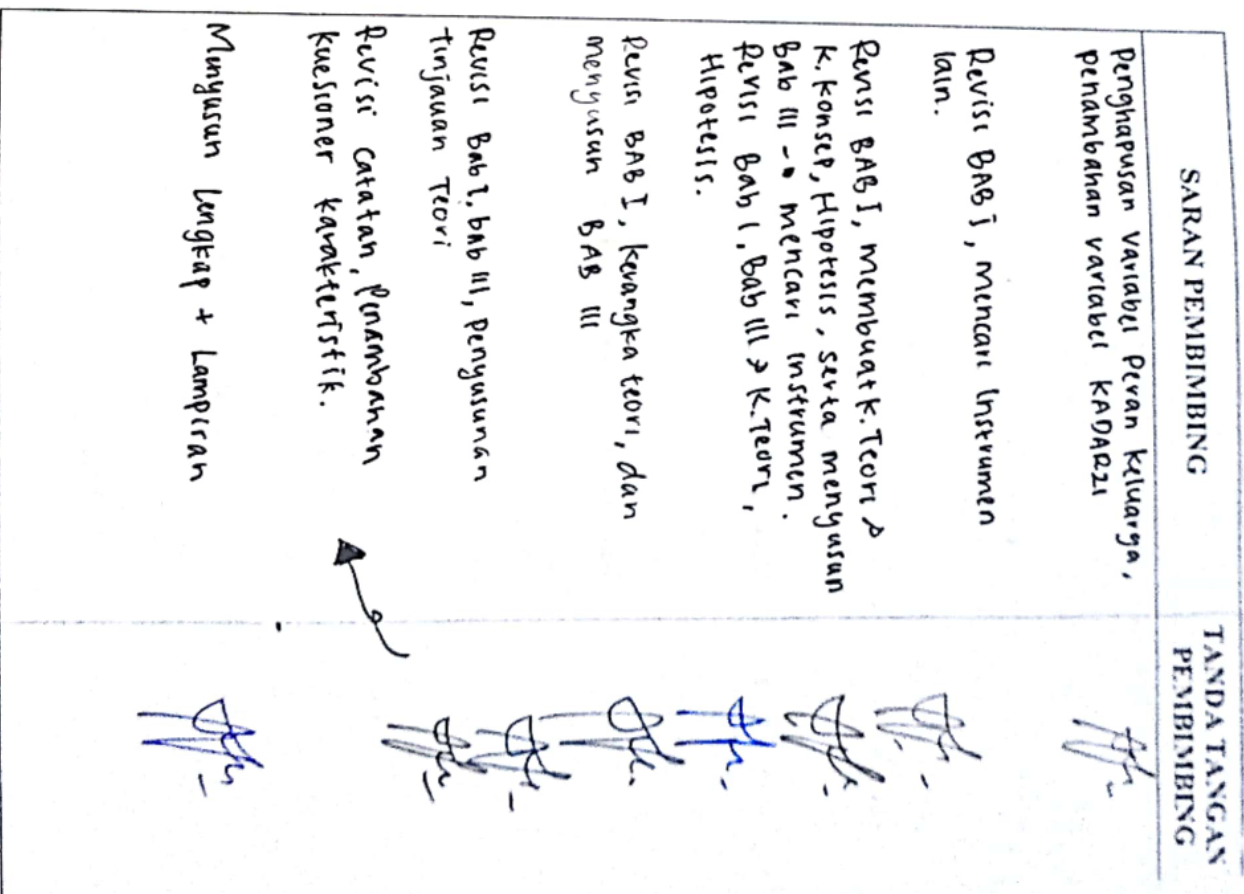 SARAN PEMBIMBING
TANDA TANGAN
PEMBIMBING
Penghapusan variabel Peran keluarga,
penambahan variabel KADARZI
Revisi BAB I, mencari Instrumen
lain.
Revisi BAB I, membuat K. Teori &
K. Konsep, Hipotesis, serta menyusun
Bab III - mencari instrumen.
Revisi Bab I, Bab III > K. Teori,
Hipotesis.
Revisi BAB I, kerangka teori, dan
menyusun BAB III
Revisi Bab I, bab III, Penyusunan
Tinjauan Teori
Revisi catatan, Penambahan
kuesioner karakteristik.
Menyusun Lengkap + Lampiran